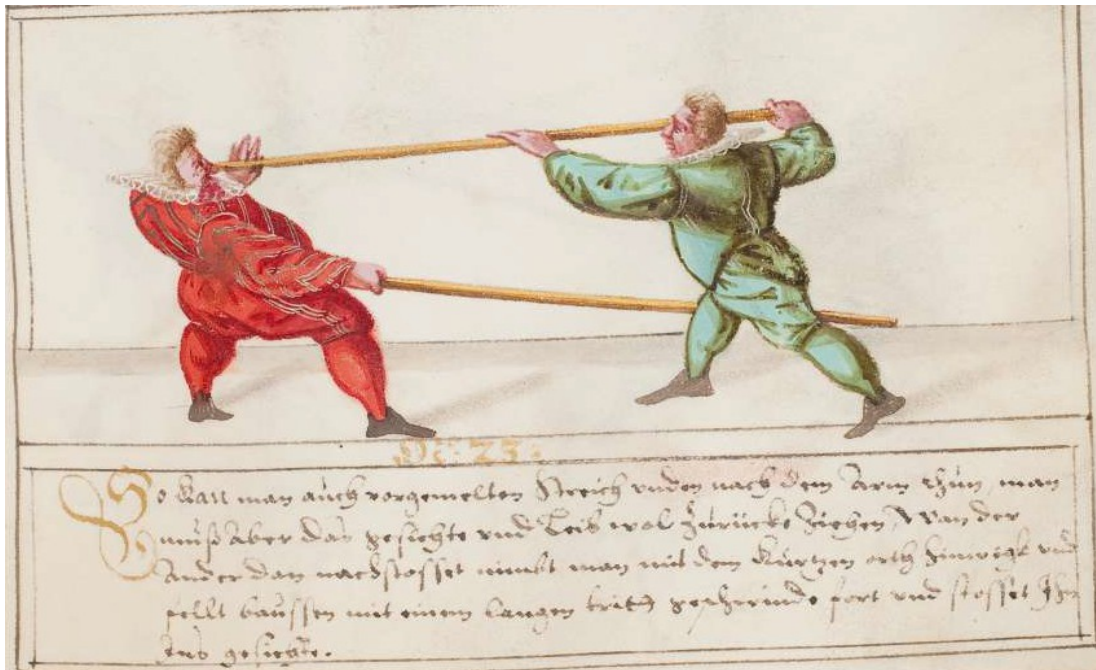 Nō: 25.
So kan man auch vorgemelten streich unden nach dem Arm thun, man
muß Aber das gesichte und Leib wol zurücke ziehen, Wan der
Ander dan nachstosset nimbt man mit dem kurtzen orth hinwegk und
fellt baussen mit einem langen tritt geschwinde fort und stosset Ihn
Ins gesichte.